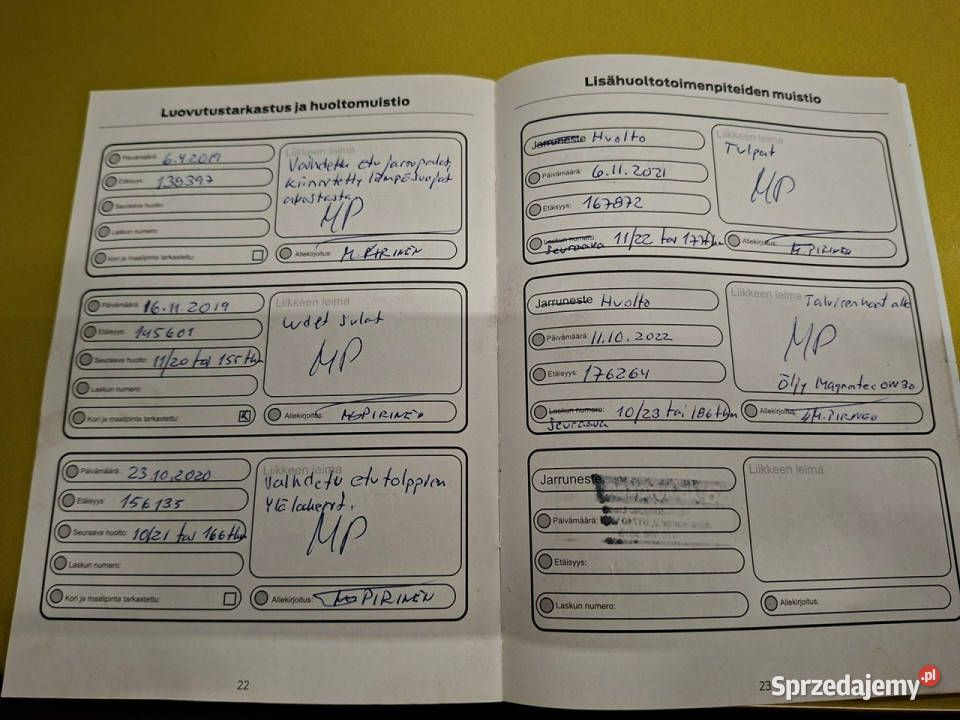 Luovutustarkastus ja huoltomuistio
Päivämäärä: 6.4.2019
Etäisyys: 139397
Seuraava huolto:
Laskun numero:
Kori ja maalipinta tarkastettu:
Liikkeen leima
Vaihdettu etu jarrupalat,
Kiinnitetty lämpösuojat
MP
Allekirjoitus: M. PIRINEN
Päivämäärä: 16.11.2019
Etäisyys: 145601
Seuraava huolto: 11/20 tai 155tkm
Laskun numero:
Kori ja maalipinta tarkastettu:
Liikkeen leima
uudet sulat
MP
Allekirjoitus: PIRINEN
Päivämäärä: 23.10.2020
Etäisyys: 156135
Seuraava huolto: 10/21 tai 166tkm
Laskun numero:
Kori ja maalipinta tarkastettu:
Liikkeen leima
Vaihdettu etu tolppien
Ylälaakerit.
MP
Allekirjoitus: PIRINEN
22
Lisähuoltotoimenpiteiden muistio
Jarruneste Huolto
Päivämäärä: 6.11.2021
Etäisyys: 167872
Laskun numero: 11/22 tai 177tkm
Seuraava
Liikkeen leima
Tulpat
MP
Allekirjoitus: M. PIRINEN
Jarruneste Huolto
Päivämäärä: 11.10.2022
Etäisyys: 176264
Laskun numero: 10/23 tai 186tkm
Seuraava
Liikkeen leima Talvirenkaat alle
MP
Öljy Magnatec 0W30
Allekirjoitus:
Jarruneste
Päivämäärä:
Etäisyys:
Laskun numero:
Liikkeen leima
Allekirjoitus:
23
Sprzedajemy.pl